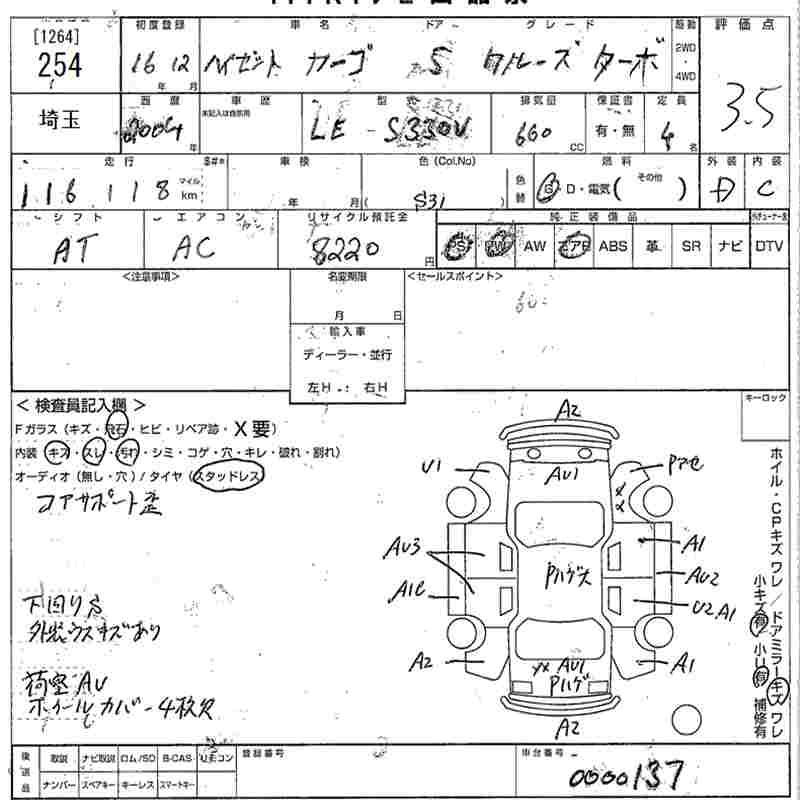 [1264]
254
初度登録
16 12
年 月
車名 ドア グレード
ハイゼット カーゴ 5 クルーズ ターボ
駆動
2WD
・
4WD
評価点
3.5
埼玉
西暦
2004
年
車歴
未記入は自家用
型式
LE - S330V
排気量
660
CC
保証書
有・無
定員
4
名
走行
116,118
マイル
km
車検
年 月
色(Col.No)
( S31 )
色替
燃料
G・D・電気( その他 )
外装
D
内装
C
シフト
AT
エアコン
AC
リサイクル預託金
8220
円
純正装備品
PS PW AW エアB ABS 革 SR ナビ DTV
<注意事項>
名変期限
月 日
輸入車
ディーラー・並行
左H ・ 右H
<セールスポイント>
キーロック
< 検査員記入欄 >
Fガラス (キズ・飛石・ヒビ・リペア跡・X要)
内装 (キズ・スレ・汚れ・シミ・コゲ・穴・キレ・破れ・割れ)
オーディオ (無し・穴) / タイヤ (スタッドレス)
コアサポート歪
下回りS
外装ウスキズあり
荷室AU
ホイールカバー4枚欠
A2
U1
AU1
Pアセ
XX
AU3
A1
A1C
Pハゲ大
AU2
U2,A1
A2
XX AU1
Pハゲ
A1
A2
ホイル・CPキズ ワレ / ドアミラーキズ ワレ
小キズ有 / 小U有 補修有
後送品
取説 ナビ取説 ロム/SD B-CAS リモコン
ナンバー スペアキー キーレス スマートキー
登録番号
車台番号
0000137